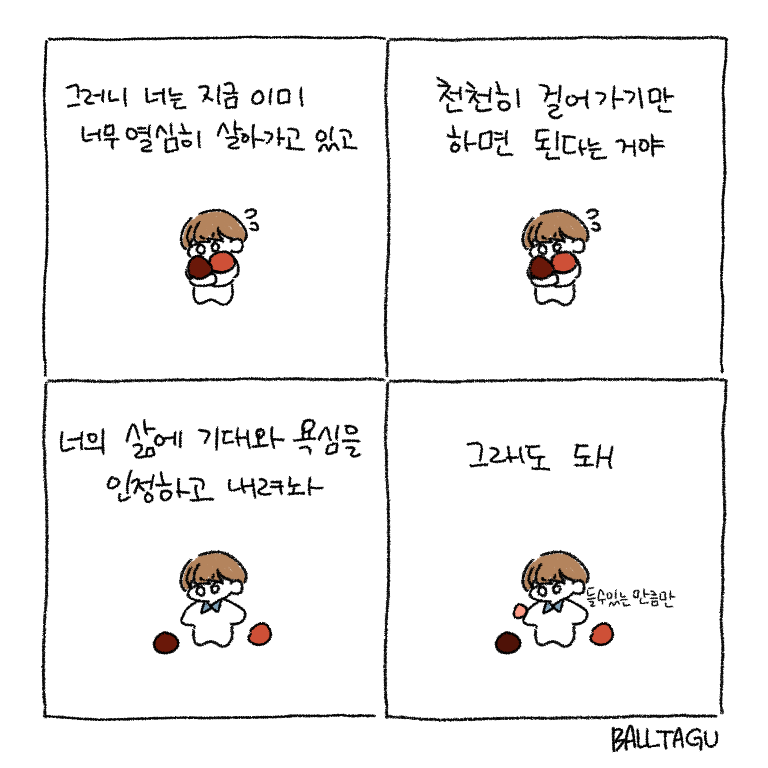 그러니 너는 지금 이미
너무 열심히 살아가고 있고
천천히 걸어가기만
하면 된다는 거야
너의 삶에 기대와 욕심을
인정하고 내려놔
그래도 돼
들수있는 만큼만
BALLTAGU